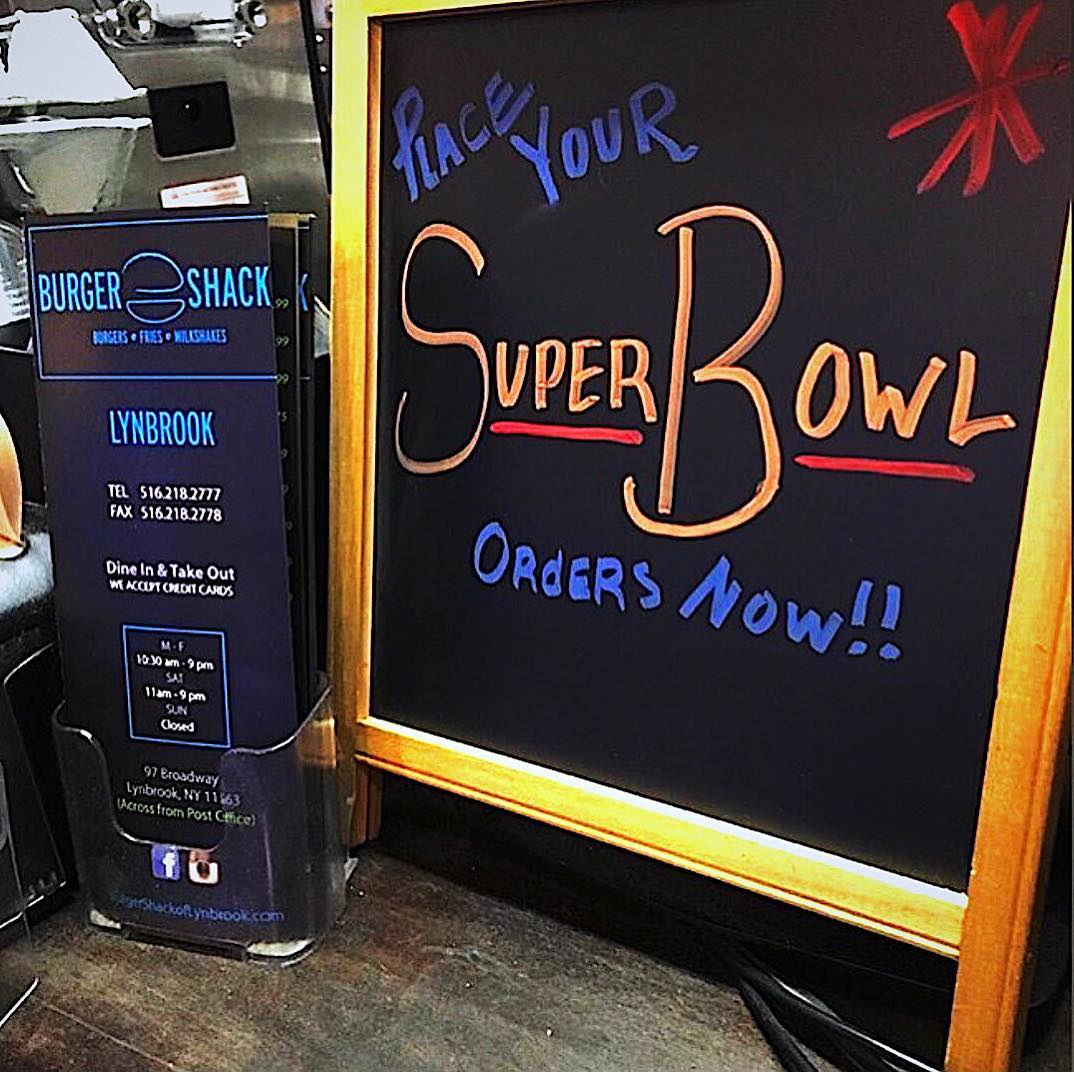 PLACE YOUR
SUPER BOWL
ORDERS NOW!!
BURGER SHACK
BURGERS • FRIES • MILKSHAKES
LYNBROOK
TEL 516.218.2777
FAX 516.218.2778
Dine In & Take Out
WE ACCEPT CREDIT CARDS
M - F
10:30 am - 9 pm
SAT
11am - 9 pm
SUN
Closed
97 Broadway
Lynbrook, NY 11563
(Across from Post Office)
f